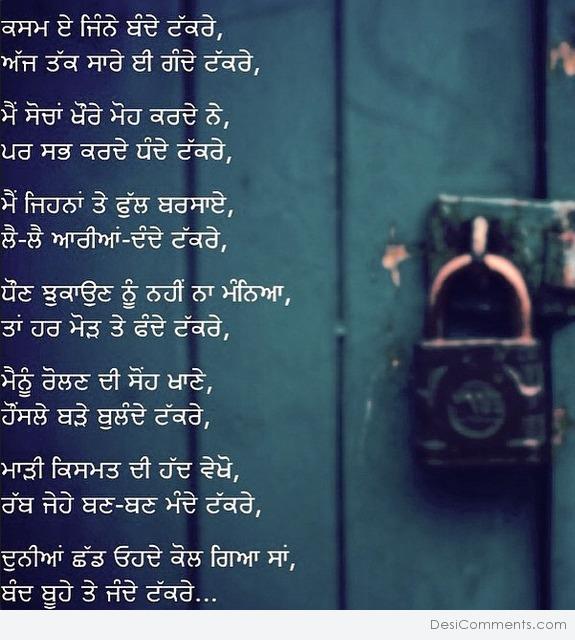 ਕਸਮ ਏ ਜਿੰਨੇ ਬੰਦੇ ਟੱਕਰੇ,
ਅੱਜ ਤੱਕ ਸਾਰੇ ਈ ਗੰਦੇ ਟੱਕਰੇ,
ਮੈਂ ਸੋਚਾਂ ਖ਼ੌਰੇ ਮੋਹ ਕਰਦੇ ਨੇ,
ਪਰ ਸਭ ਕਰਦੇ ਧੰਦੇ ਟੱਕਰੇ,
ਮੈਂ ਜਿਹਨਾਂ ਤੇ ਫੁੱਲ ਬਰਸਾਏ,
ਲੈ-ਲੈ ਆਰੀਆਂ-ਦੰਦੇ ਟੱਕਰੇ,
ਧੌਣ ਝੁਕਾਉਣ ਨੂੰ ਨਹੀਂ ਨਾ ਮੰਨਿਆ,
ਤਾਂ ਹਰ ਮੋੜ ਤੇ ਫੰਦੇ ਟੱਕਰੇ,
ਮੈਨੂੰ ਰੋਲਣ ਦੀ ਸੌਂਹ ਖਾਣੇ,
ਹੌਂਸਲੇ ਬੜੇ ਬੁਲੰਦੇ ਟੱਕਰੇ,
ਮਾੜੀ ਕਿਸਮਤ ਦੀ ਹੱਦ ਵੇਖੋ,
ਰੱਬ ਜੇਹੇ ਬਣ-ਬਣ ਮੰਦੇ ਟੱਕਰੇ,
ਦੁਨੀਆਂ ਛੱਡ ਓਹਦੇ ਕੋਲ ਗਿਆ ਸਾਂ,
ਬੰਦ ਬੂਹੇ ਤੇ ਜੰਦੇ ਟੱਕਰੇ...
DesiComments.com